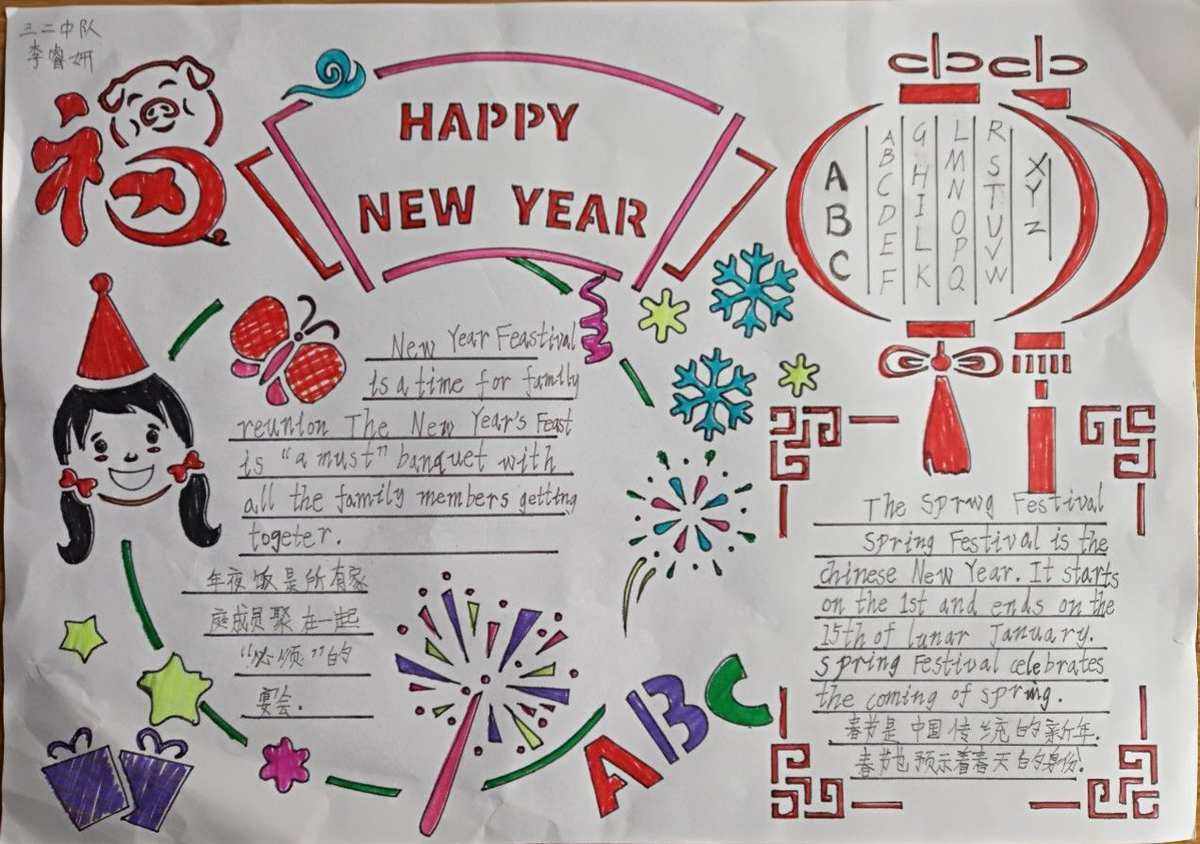 三二中队
李睿妍
福
HAPPY
NEW YEAR
A B C
A B C D E F
G H I L K
L M N O P Q
R S T U V W
X Y Z
New Year Feastival
is a time for family
reunion The New Year's Feast
is "a must" banquet with
all the family members getting
togeter.
年夜饭是所有家
庭成员聚在一起
"必须"的
宴会.
ABC
The Spring Festival
Spring Festival is the
chinese New Year. It starts
on the 1st and ends on the
15th of lunar January.
Spring Festival celebrates
the coming of spring.
春节是中国传统的新年.
春节也预示着春天的身份.